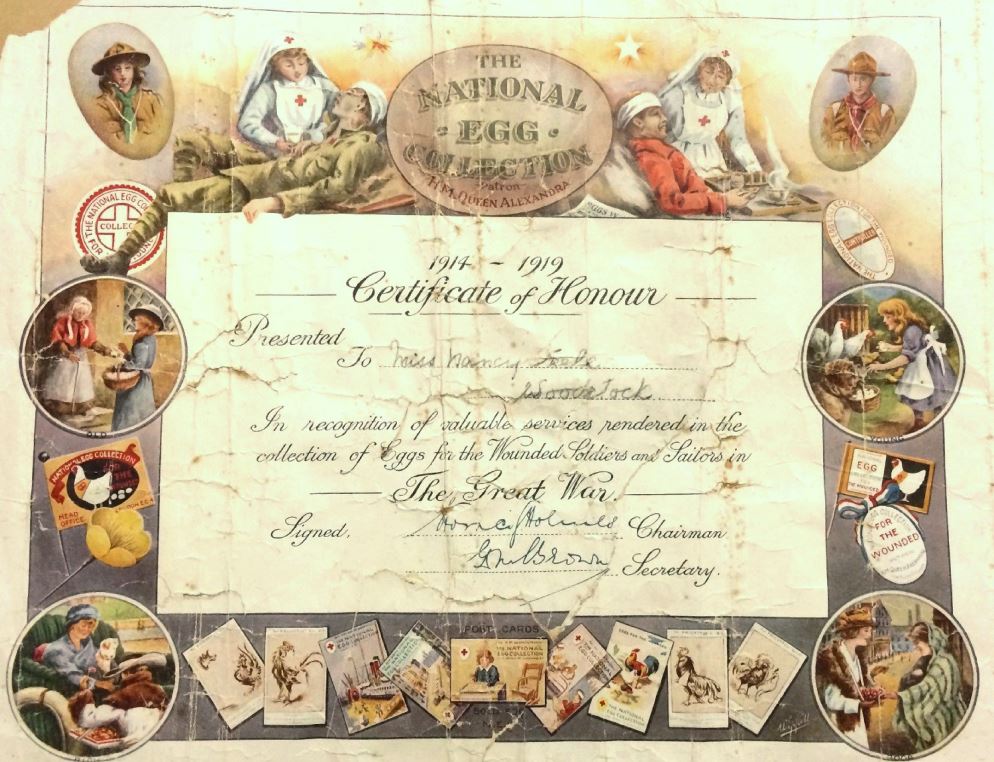 THE
NATIONAL
· EGG ·
COLLECTION
Patron
H.M. QUEEN ALEXANDRA
THE NATIONAL EGG
COLLEC
FOR
1914 – 1919
Certificate of Honour
Presented
To Miss Nancy
Woodstock
In recognition of valuable services rendered in the
collection of Eggs for the Wounded Soldiers and Sailors in
The Great War.
Signed, Horncy Holmes Chairman
Brown Secretary.
OLD
YOUNG
NATIONAL EGG COLLECTION
FOR
THE
HEAD
OFFICE
LONDON. E.C.4
EGG
THE WOUNDED
FOR
THE
WOUNDED
POST CARDS
THE NATIONAL
EGG COLLECTION
THE NATIONAL
EGG COLLECTION